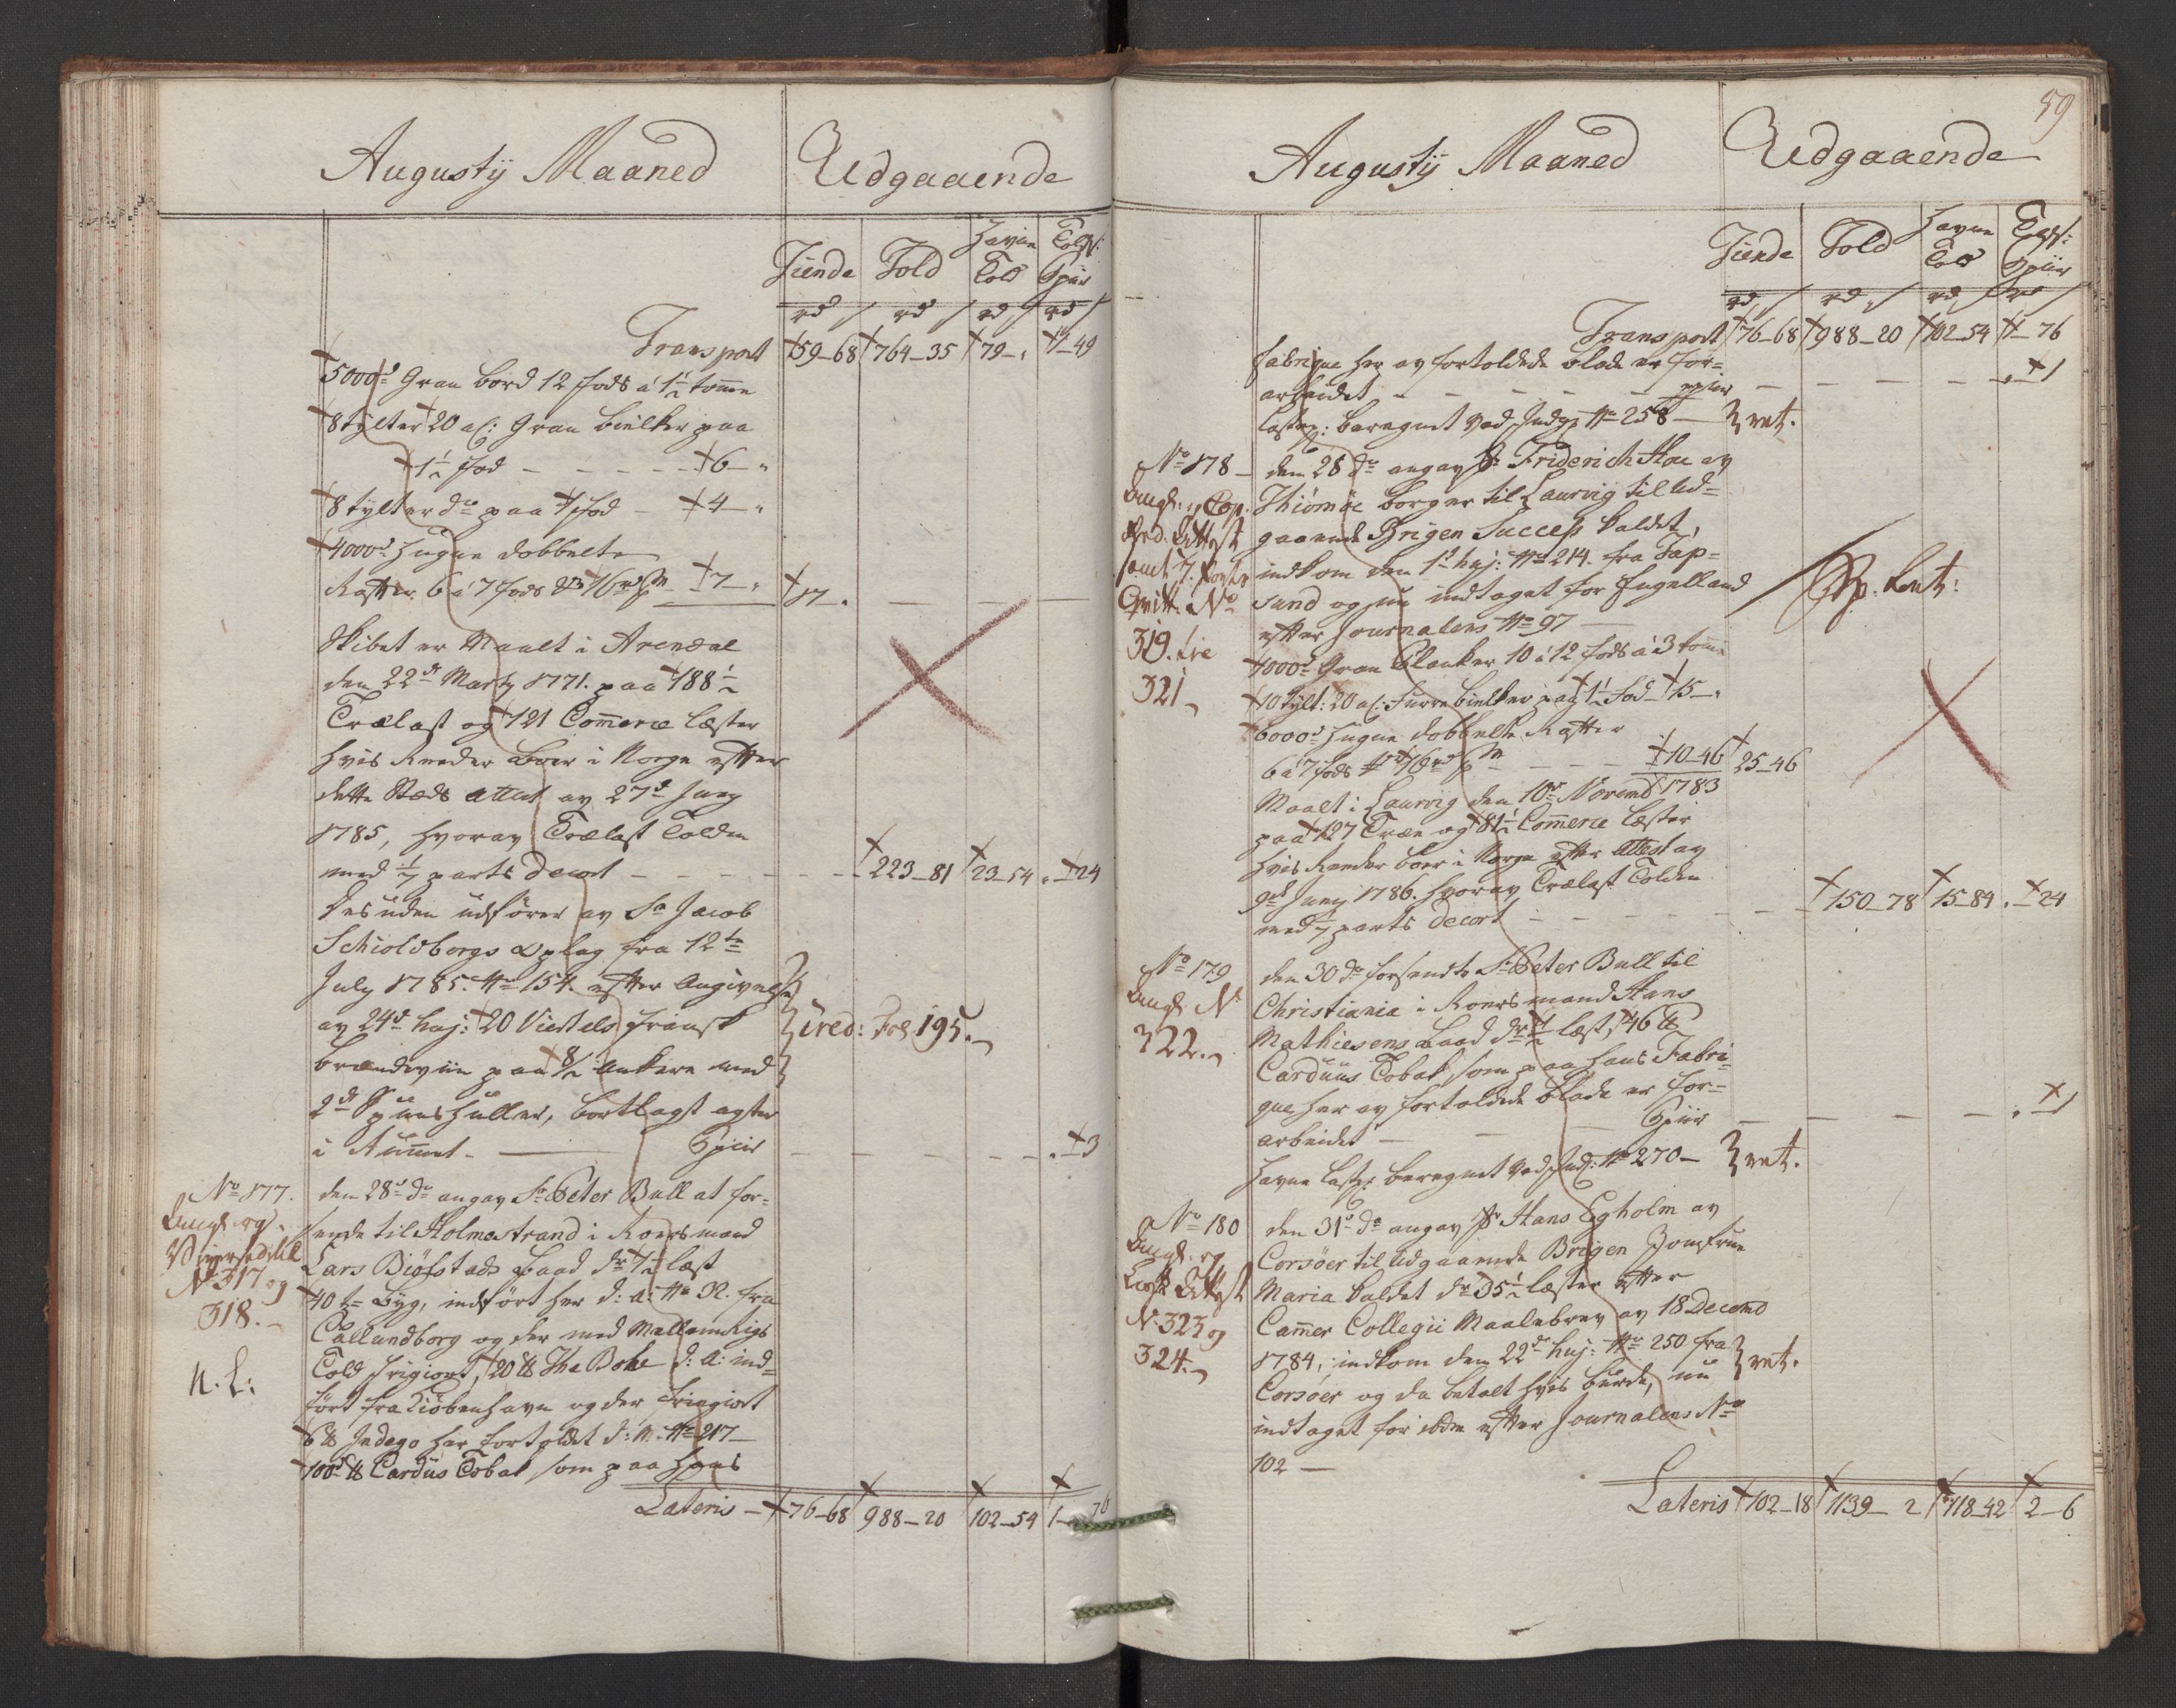 Augustÿ Maaned
Udgaaende
Tiende Told Havne Told Told: Spiir
rd ſ rd ſ rd ſ rd ſ
Transport 59-68 764-35 79-" 1-49
5000d Gran bord 12 fods á 1½ tomme
8 tylter 20 al: Gran bielker paa
1½ fod - - - 6-"
8 tylter do paa 1 fod - 4-"
4000d hugne dobbelte
Rafter 6 á 7 fods 7-" 17-"
Skibet er Maalt i Arendal
den 22de Marty 1771. paa 188½
Trælast og 121 Commerce læster
hvis Reeder boer i Norge efter
dette Steds Attest av 27de Juny
1785, hvorav Trælast Tolden
med 1/7 parts Decort - - - 223-81 23-54 "-24
Des uden udfører av Sr Jacob
Schioldborgs oplag fra 12te
July 1785. No 154. efter Angivelse
av 24de huj: 20 Viertels fransk
brændeviin paa 8/2 Ankere med
2de Spunshuller, bortlagt agter
i Rummet - Spiir - - - "-3
Cred: Fol 195.
No 177.
Angl: og
Veiersedel
No 317 og
318.
N. L:
den 28de do angav Sr Peter Bull at for=
sende til Holmestrand i Roersmand
Lars Biøfstads Baad dr 1½ læst
40 tr Byg, indført her d: A: No 32. fra
Callundborg og der med Mellemrigs
Told frigiort, 20 ℔ The Bohe d: A: ind=
ført fra Kiöbenhavn og der frigiort
6 ℔ Indego her fortoldet d: M: No 217
100 ℔ Cardus Tobak som paa hans
Lateris - 76-68 988-20 102-54 1-76
59
Augustÿ Maaned
Udgaaende
Tiende Told Havne Told Told: Spiir
rd ſ rd ſ rd ſ rd ſ
Transport 76-68 988-20 102-54 1-76
fabrique her av fortoldede blade er for=
arbeidet - - - Spiir - - - "-1
Lastp: beregnet ved Indg: No 258 - ret.
No 178
Angl: og Cop.
Red. Attest
samt
Qvitt. No
319. tre
321
den 28de do angav Sr Friderich Hou av
Thiömöe borger til Laurvig til ud=
gaaende Brigen Success kaldet,
indkom den 1te huj: No 214. fra Fap=
sund og nu indtaget for Engelland
efter Journalens No 97
1000d Gran Planker 10 á 12 fods á 3 tomm
10 Tylt: 20 al: Furre bielker paa 1½ fod 15-"
6000d hugne dobbelte Rafter
6 á 7 fods 10-46 25-46
Maalt i Laurvig den 10de Novemb 1783
paa 127 Træe og 81½ Commerce læster
hvis Reeder boer i Norge efter Attest av
9de Juny 1786. hvorav Trælast Tolden
med 1/7 parts Decort - - - 150-78 15-84 "-24
No 179
Angl: No
322.
den 30 do forsendte Sr Peter Bull til
Christiania i Roersmand Hans
Mathiesens Baad dr ½ læst, 46 ℔
Carduus Tobak som paa hans Fabri=
que her av fortoldede blade er for=
arbeidet - - Spiir - - - "-1
Havne Lastp: beregnet ved Ind: No 270 - ret.
No 180
Angl: og
Attest
No 323 og
324.
den 31te do angav Sr Hans Egholm av
Corsöer til udgaaende Brigen Jomfrue
Maria kaldet dr 35½ læster efter
Cammer Collegii Maalebrev av 18 Decemb
1784, indkom den 22de huj: No 250 fra
Corsöer og da betalt hvis burde, nu ret.
indtaget for ibdm efter Journalens No
102 -
Lateris 102-18 1139-2 118-42 2-6